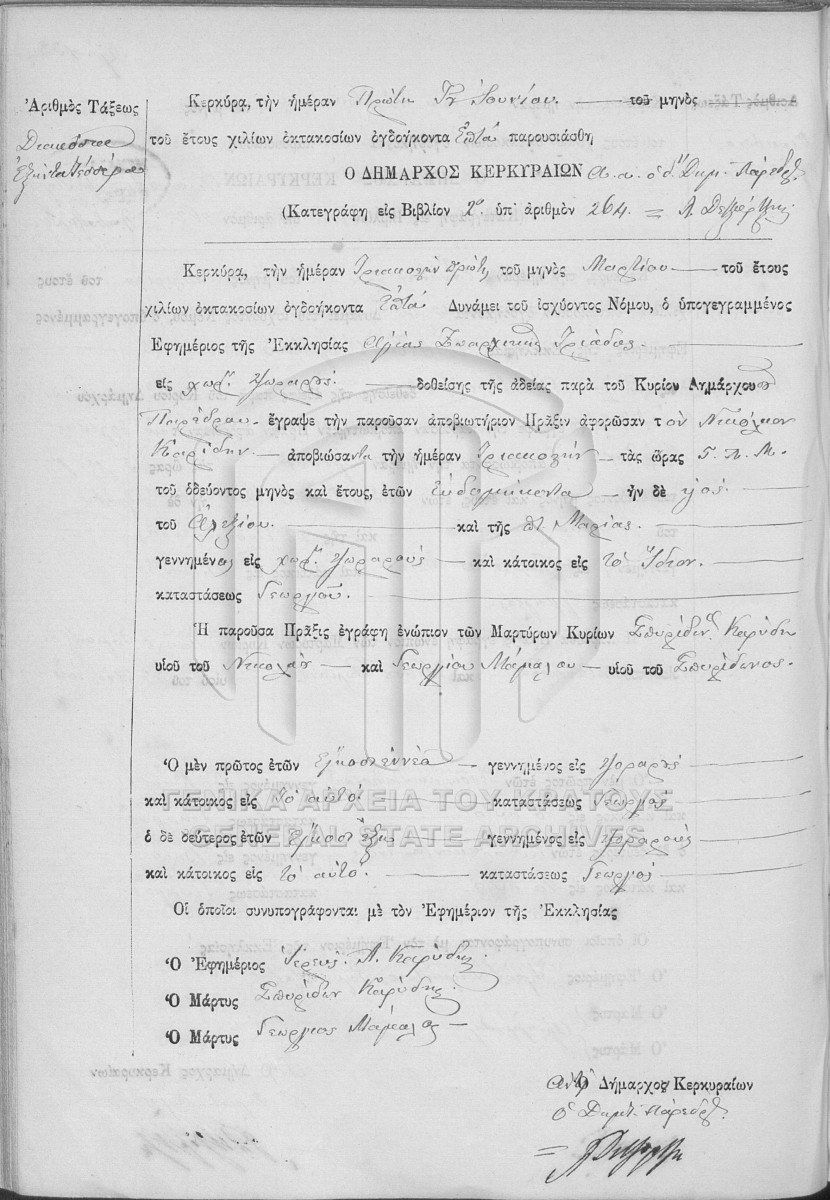 Ἀριθμὸς Τάξεως
Διακόσια
Ἑξήντα τέσσερα
Κερκύρᾳ, τὴν ἡμέραν Πρώτη Ἰουνίου τοῦ μηνὸς
τοῦ ἔτους χιλίων ὀκτακοσίων ὀγδοήκοντα Ἑπτὰ παρουσιάσθη
Ο ΔΗΜΑΡΧΟΣ ΚΕΡΚΥΡΑΙΩΝ ὁ Δημ. Πάρεδρος
(Κατεγράφη εἰς Βιβλίον 2ον ὑπ' ἀριθμὸν 264 =
Κερκύρᾳ, τὴν ἡμέραν Τριακοστὴν πρώτη τοῦ μηνὸς Μαρτίου τοῦ ἔτους
χιλίων ὀκτακοσίων ὀγδοήκοντα Ἑπτὰ Δυνάμει τοῦ ἰσχύοντος Νόμου, ὁ ὑπογεγραμμένος
Ἐφημέριος τῆς Ἐκκλησίας Ἁγίας Τριάδος
εἰς χωρ. δοθείσης τῆς ἀδείας παρὰ τοῦ Κυρίου Δημάρχου
Παρέδρου ἔγραψε τὴν παροῦσαν ἀποβιωτήριον Πρᾶξιν ἀφορῶσαν τὸν Νικόλαον
Καρύδην ἀποβιώσαντα τὴν ἡμέραν Τριακοστὴν τὰς ὥρας Γ. Π. Μ.
τοῦ ὁδεύοντος μηνὸς καὶ ἔτους, ἐτῶν Ἑβδομήκοντα ἦν δὲ υἱὸς
τοῦ Ἀλεξίου καὶ τῆς Μαρίας
γεννημένος εἰς χωρ. καὶ κάτοικος εἰς τὸ ἴδιον
καταστάσεως Γεωργοῦ
Ἡ παροῦσα Πρᾶξις ἐγράφη ἐνώπιον τῶν Μαρτύρων Κυρίων Σπυρίδων Καρύδη
υἱοῦ τοῦ Νικολάου καὶ Γεωργίου Μάμαλου υἱοῦ τοῦ Σπυρίδωνος
Ὁ μὲν πρῶτος ἐτῶν Εἴκοσι ἐννέα γεννημένος εἰς
καὶ κάτοικος εἰς τὸ αὐτὸ καταστάσεως Γεωργός
ὁ δὲ δεύτερος ἐτῶν Εἴκοσι ἕξι γεννημένος εἰς
καὶ κάτοικος εἰς τὸ αὐτό καταστάσεως Γεωργός
Οἱ ὁποῖοι συνυπογράφονται μὲ τὸν Ἐφημέριον τῆς Ἐκκλησίας
Ὁ Ἐφημέριος Ἱερεὺς Καρύδης
Ὁ Μάρτυς Σπυρίδων Καρύδης
Ὁ Μάρτυς Γεώργιος Μάμαλος
Δήμαρχος Κερκυραίων
ὁ Δημ. Πάρεδρος
ΓΕΝΙΚΑ ΑΡΧΕΙΑ ΤΟΥ ΚΡΑΤΟΥΣ
GENERAL STATE ARCHIVES